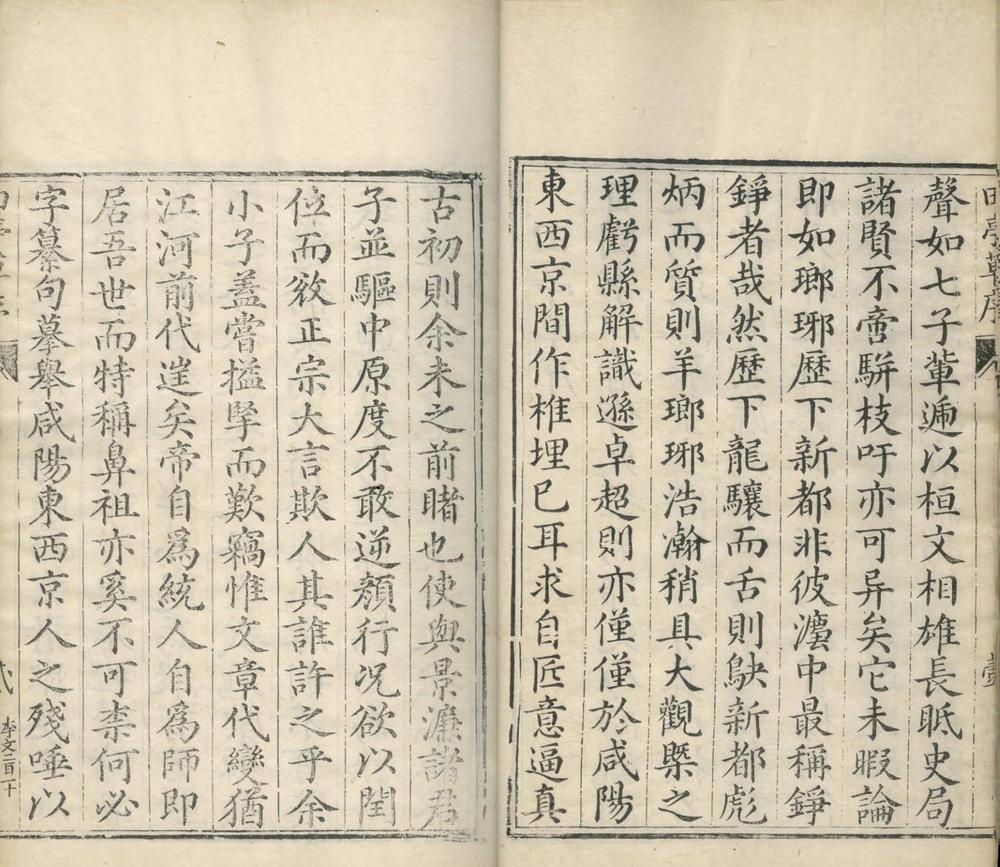 田亭草序
壹
聲如七子輩遞以桓文相雄長眡史局
諸賢不啻駢枝吁亦可异矣它未暇論
即如瑯琊歷下新都非彼瀍中最稱錚
錚者哉然歷下龍驤而舌則鴃新都彪
炳而質則羊瑯琊浩瀚稍具大觀槩之
理虧縣解識遜卓超則亦僅僅於咸陽
東西京間作椎埋已耳求自匠意逼真
古初則余未之前睹也使與景濂諸君
子並驅中原度不敢逆顏行况欲以閏
位而敚正宗大言欺人其誰許之乎余
小子蓋嘗搤掔而歎竊惟文章代變猶
江河前代逹矣帝自爲統人自爲師即
居吾世而特稱鼻祖亦奚不可柰何必
字纂句摹舉咸陽東西京人之殘唾以
李文二百一十